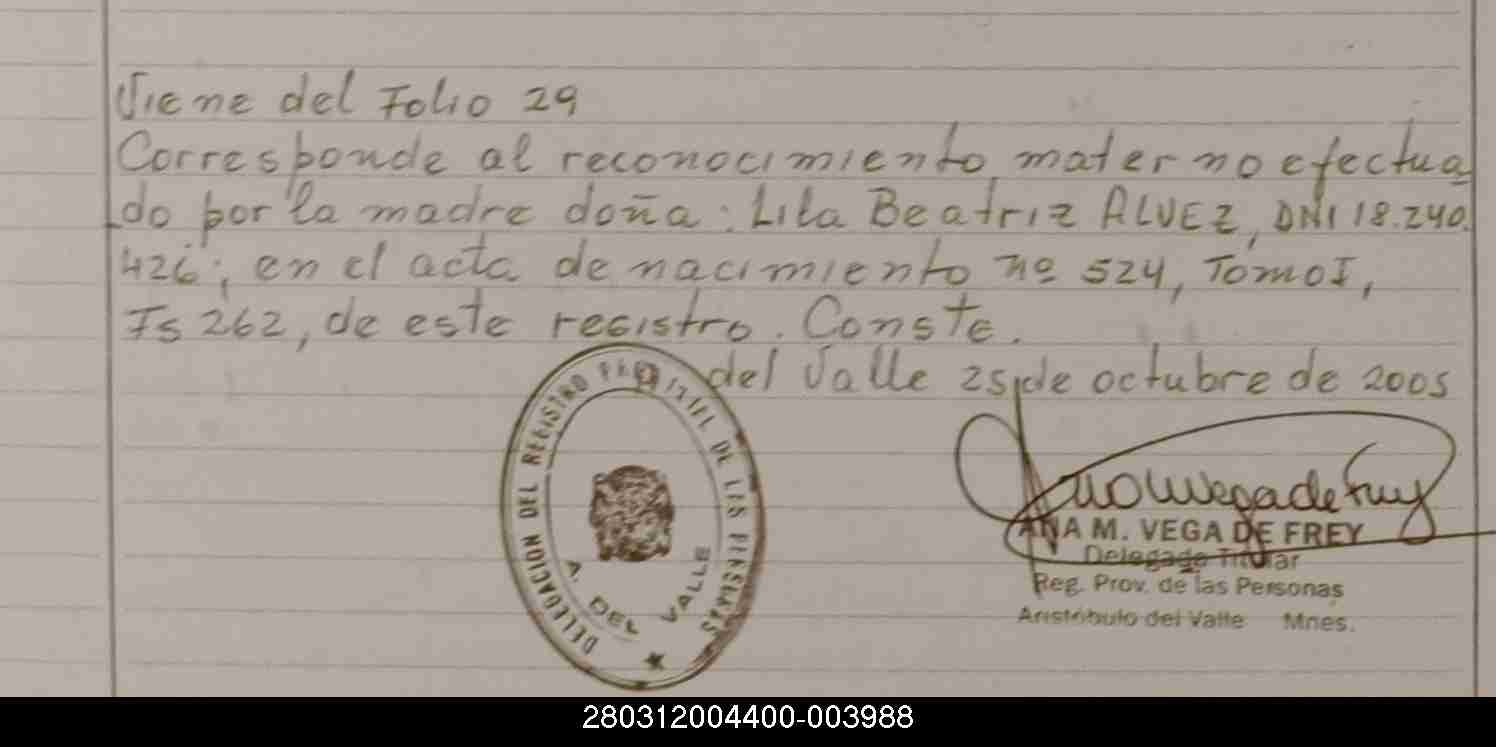 Viene del Folio 29
Corresponde al reconocimiento materno efectua
do por la madre doña: Lila Beatriz ALVEZ, DNI 18.240.
426; en el acta de nacimiento nº 524, Tomo I,
Fs 262, de este registro. Conste.
del Valle 25 de octubre de 2005
DELEGACION DEL REGISTRO DE LAS PERSONAS
A. DEL VALLE
Ana M Vega de Frey
ANA M. VEGA DE FREY
Delegado Titular
Reg. Prov. de las Personas
Aristóbulo del Valle Mnes.
280312004400-003988